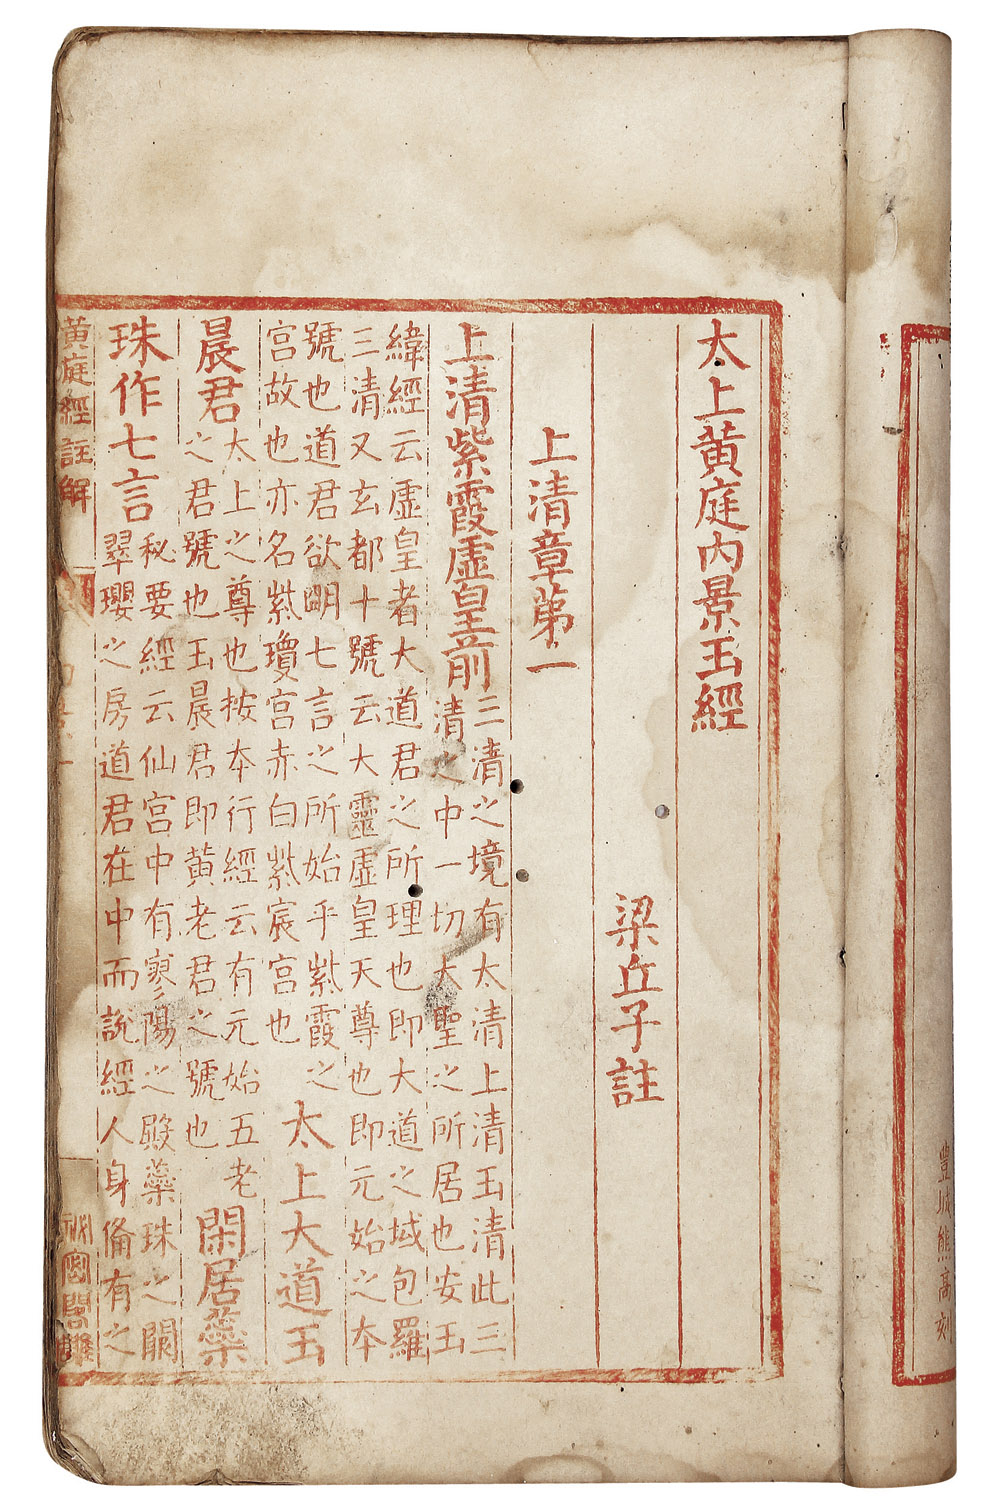 豐城熊高刻
太上黃庭內景玉經
梁丘子註
上清章第一
上清紫霞虛皇前
三清之境有太清上清玉清此三
清之中一切大聖之所居也安玉
緯經云虛皇者大道君之所理也即大道之域包羅
三清又玄都十號云大靈虛皇天尊也即元始之本
號也道君欲明七言之所始乎紫霞之
宮故也亦名紫瓊宮赤白紫宸宮也
太上大道玉
晨君
太上之尊也按本行經云有元始五老
之君號也玉晨君即黃老君之號也
閑居蘂
珠作七言
秘要經云仙宮中有寥陽之殿蘂珠之闕
翠瓔之房道君在中而說經人身俻有之
黃庭經註解